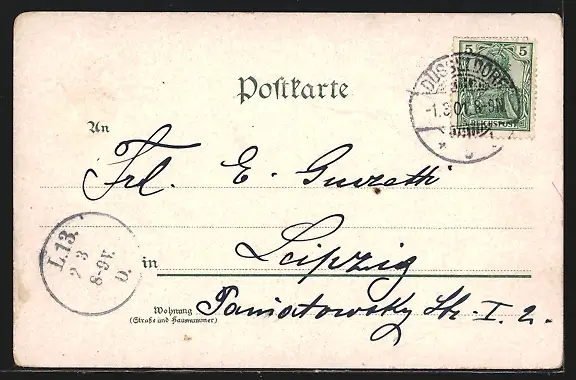 5 5
Postkarte
DÜSSELDORF
-1.3.01. 8-9N
REICHSPOST
An
Frl. E. Gurrath
Leipzig
in
L.13.
2 3
8-9V.
O.
Wohnung
(Straße und Hausnummer)
Poniatowsky Str. I. 2.